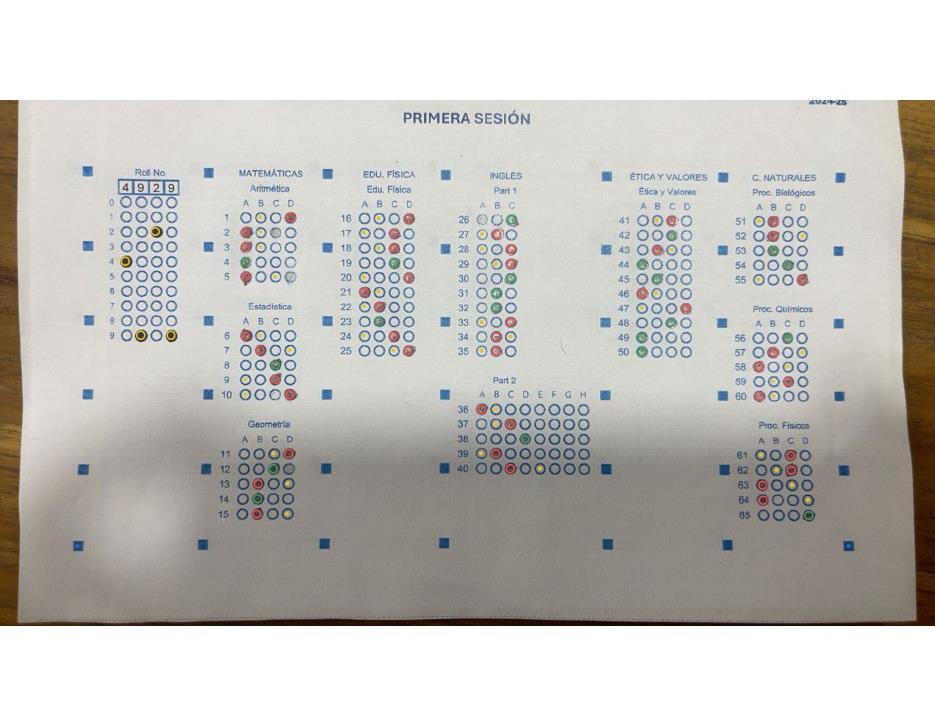 2024-2s
PRIMERA SESIÓN
Roll No
4 9 2 9
0
1
2
3
4
5
6
7
8
9
MATEMÁTICAS
Aritmética
A B C D
1
2
3
4
5
Estadística
A B C D
6
7
8
9
10
Geometría
A B C D
11
12
13
14
15
EDU. FÍSICA
Edu. Física
A B C D
16
17
18
19
20
21
22
23
24
25
INGLÉS
Part 1
A B C
26
27
28
29
30
31
32
33
34
35
Part 2
A B C D E F G H
36
37
38
39
40
ÉTICA Y VALORES
Ética y Valores
A B C D
41
42
43
44
45
46
47
48
49
50
C. NATURALES
Proc. Biológicos
A B C D
51
52
53
54
55
Proc. Químicos
A B C D
56
57
58
59
60
Proc. Físicos
A B C D
61
62
63
64
65